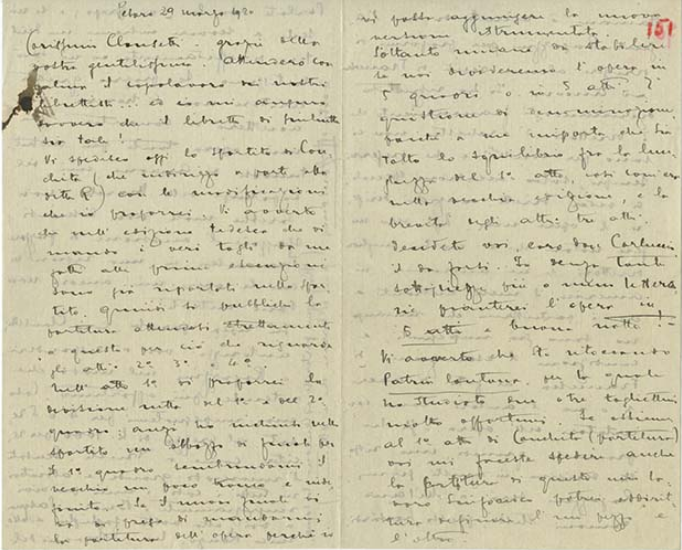 Pesaro 29 marzo 1920
Carissimo Clausetti. grazie della
vostra gentilissima. Attenderò con
il capolavoro dei nostri
librettisti... ed io mi auguro
davvero che il libretto di Giulietta
sia tale!
Vi spedisco oggi lo spartito di Con-
chita (che indirizzo a parte alla
ditta R) con le modificazioni
che io proporrei. Vi avverto
che nell'edizione tedesca che vi
mando i veri tagli da me
fatti alle prime esecuzioni
sono già riportati nello spar-
tito. Quindi si pubblichi la
partitura attenendosi strettamente
a questo per ciò che riguarda
gli atti 2º 3º e 4º.
Nell'atto 1º vi proporrei la
divisione netta del 1º e del 2º
quadro, anzi ho inclusa nello
spartito un abbozzo di finale per
il 1º quadro sembrandomi il
vecchio un poco tronco e inde-
finito. Se
la partitura dell'opera perché io
vi possa aggiungere la nuova
versione istrumentata.
Soltanto rimane da stabilire
se noi divideremo l'opera in
5 quadri o in 5 atti.
questione di denominazione
a me importa che sia
tolto lo squilibrio fra la lun-
ghezza del 1º atto, così com'era
nella vecchia edizione, e la
brevità degli altri tre atti.
Decidete voi, caro don Carluccio
il da farsi. Io senza tanti
più o meno lettera-
rie pianterei l'opera in
5 atti e buona notte!
Vi avverto che sto ritoccando
Patria lontana, per la quale
ho studiato due o tre taglietti
molto opportuni. Se assieme
al 1º atto di Conchita (partitura)
voi mi faceste spedire anche
la partitura di questo mio la-
voro sinfonico potrei addirit-
tura definire l'un pezzo e
l'altro.
151